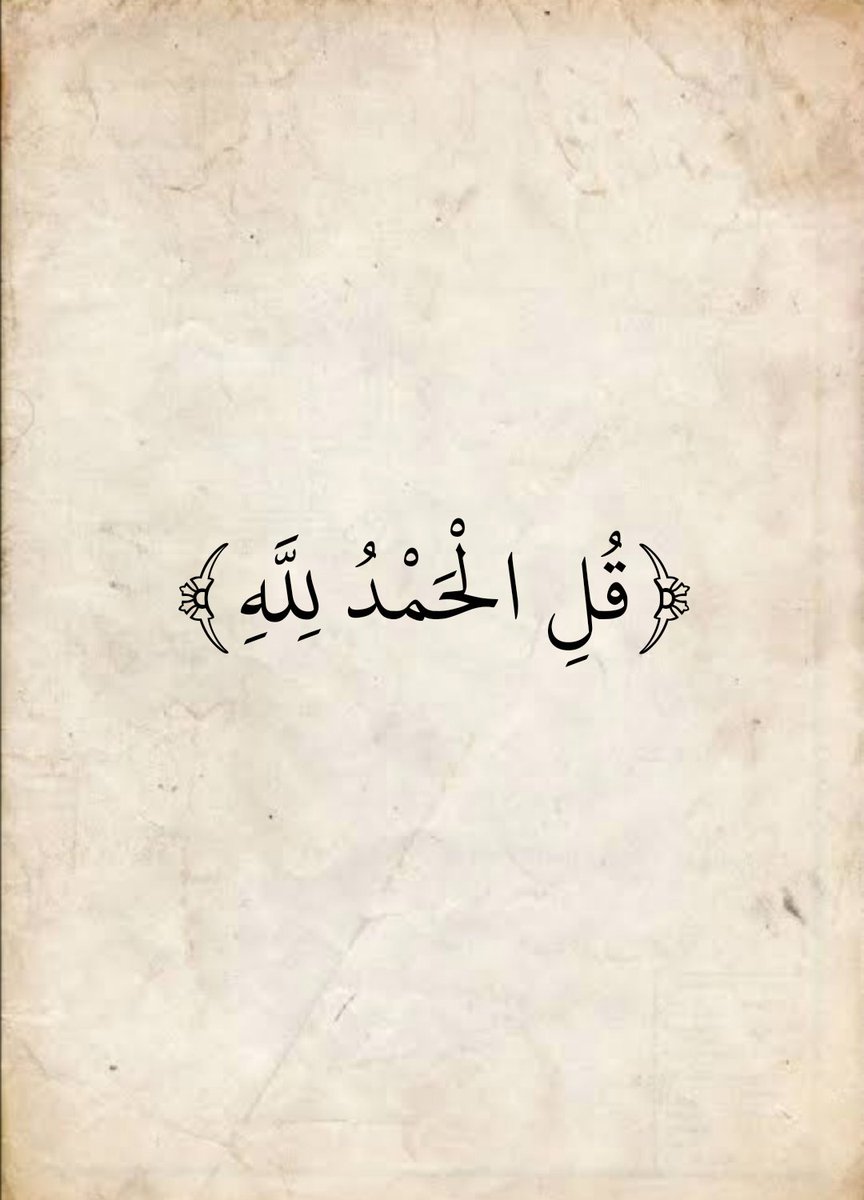 ﴿قُلِ الْحَمْدُ لِلَّهِ﴾